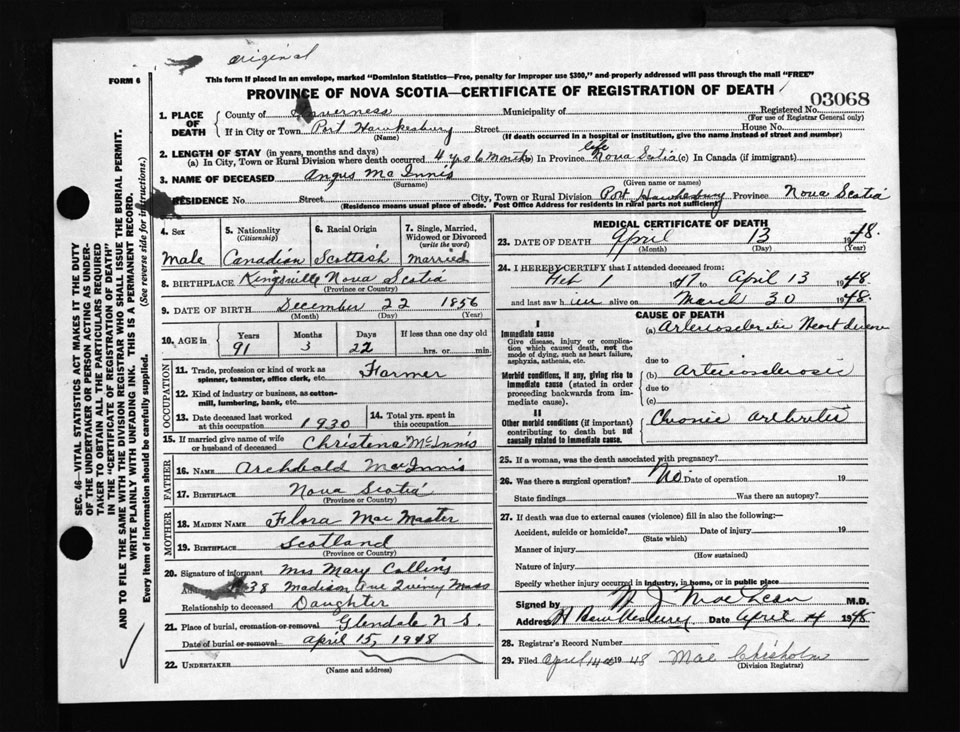 original
FORM 6
This form if placed in an envelope, marked "Dominion Statistics—Free, penalty for improper use $300," and properly addressed will pass through the mail "FREE"
PROVINCE OF NOVA SCOTIA—CERTIFICATE OF REGISTRATION OF DEATH
03068
1. PLACE OF DEATH
County of Inverness Municipality of Registered No.
(For use of Registrar General only)
If in City or Town Port Hawkesbury Street House No.
(Name) (If death occurred in a hospital or institution, give the name instead of street and number)
2. LENGTH OF STAY (in years, months and days)
(a) In City, Town or Rural Division where death occurred 4 yrs 6 months (b) In Province life Nova Scotia (c) In Canada (if immigrant)
3. NAME OF DECEASED Angus McInnis
(Surname) (Given name or names)
RESIDENCE No. Street City, Town or Rural Division Port Hawkesbury Province Nova Scotia
(Residence means usual place of abode. Post Office Address for residents in rural parts not sufficient)
4. Sex Male
5. Nationality (Citizenship) Canadian
6. Racial Origin Scottish
7. Single, Married, Widowed or Divorced (write the word) Married
8. BIRTHPLACE Kingsville Nova Scotia
(Province or Country)
9. DATE OF BIRTH December 22 1856
(Month) (Day) (Year)
10. AGE in Years 91 Months 3 Days 22 If less than one day old hrs. or min.
OCCUPATION
11. Trade, profession or kind of work as spinner, teamster, office clerk, etc. Farmer
12. Kind of industry or business, as cotton-mill, lumbering, bank, etc.
13. Date deceased last worked at this occupation 1930
14. Total yrs. spent in this occupation
15. If married give name of wife or husband of deceased Christena McInnis
FATHER
16. NAME Archibald MacInnis
17. BIRTHPLACE Nova Scotia
(Province or Country)
MOTHER
18. MAIDEN NAME Flora MacMaster
19. BIRTHPLACE Scotland
(Province or Country)
20. Signature of informant Mrs Mary Collins
38 Madison Ave Quincy Mass
Relationship to deceased Daughter
21. Place of burial, cremation or removal Glendale N S.
Date of burial or removal April 15, 1948
22. UNDERTAKER
(Name and address)
MEDICAL CERTIFICATE OF DEATH
23. DATE OF DEATH April 13 1948.
(Month) (Day) (Year)
24. I HEREBY CERTIFY that I attended deceased from:
Feb 1 1947 to April 13 1948
and last saw him alive on March 30 1948.
CAUSE OF DEATH
I
Immediate cause
Give disease, injury or complication which caused death, not the mode of dying, such as heart failure, asphyxia, asthenia, etc.
(a) Arteriosclerotic Heart disease
due to
Morbid conditions, if any, giving rise to immediate cause (stated in order proceeding backwards from immediate cause).
(b) Arteriosclerosis
due to
(c)
II
Other morbid conditions (if important) contributing to death but not causally related to immediate cause.
Chronic arthritis
25. If a woman, was the death associated with pregnancy?
26. Was there a surgical operation? No Date of operation 19
State findings Was there an autopsy?
27. If death was due to external causes (violence) fill in also the following:—
Accident, suicide or homicide? Date of injury 19
(State which)
Manner of injury
(How sustained)
Nature of injury
Specify whether injury occurred in industry, in home, or in public place
Signed by MacLean M.D.
Address Date April 14 1948
28. Registrar's Record Number
29. Filed April 14 1948 Mae Chisholm
(Division Registrar)
SEC. 46—VITAL STATISTICS ACT MAKES IT THE DUTY
OF THE UNDERTAKER OR PERSON ACTING AS UNDER-
TAKER TO OBTAIN ALL THE PARTICULARS REQUIRED
IN THE "CERTIFICATE OF REGISTRATION OF DEATH"
AND TO FILE THE SAME WITH THE DIVISION REGISTRAR WHO SHALL ISSUE THE BURIAL PERMIT.
WRITE PLAINLY WITH UNFADING INK. THIS IS A PERMANENT RECORD.
Every item of information should be carefully supplied. (See reverse side for instructions.)